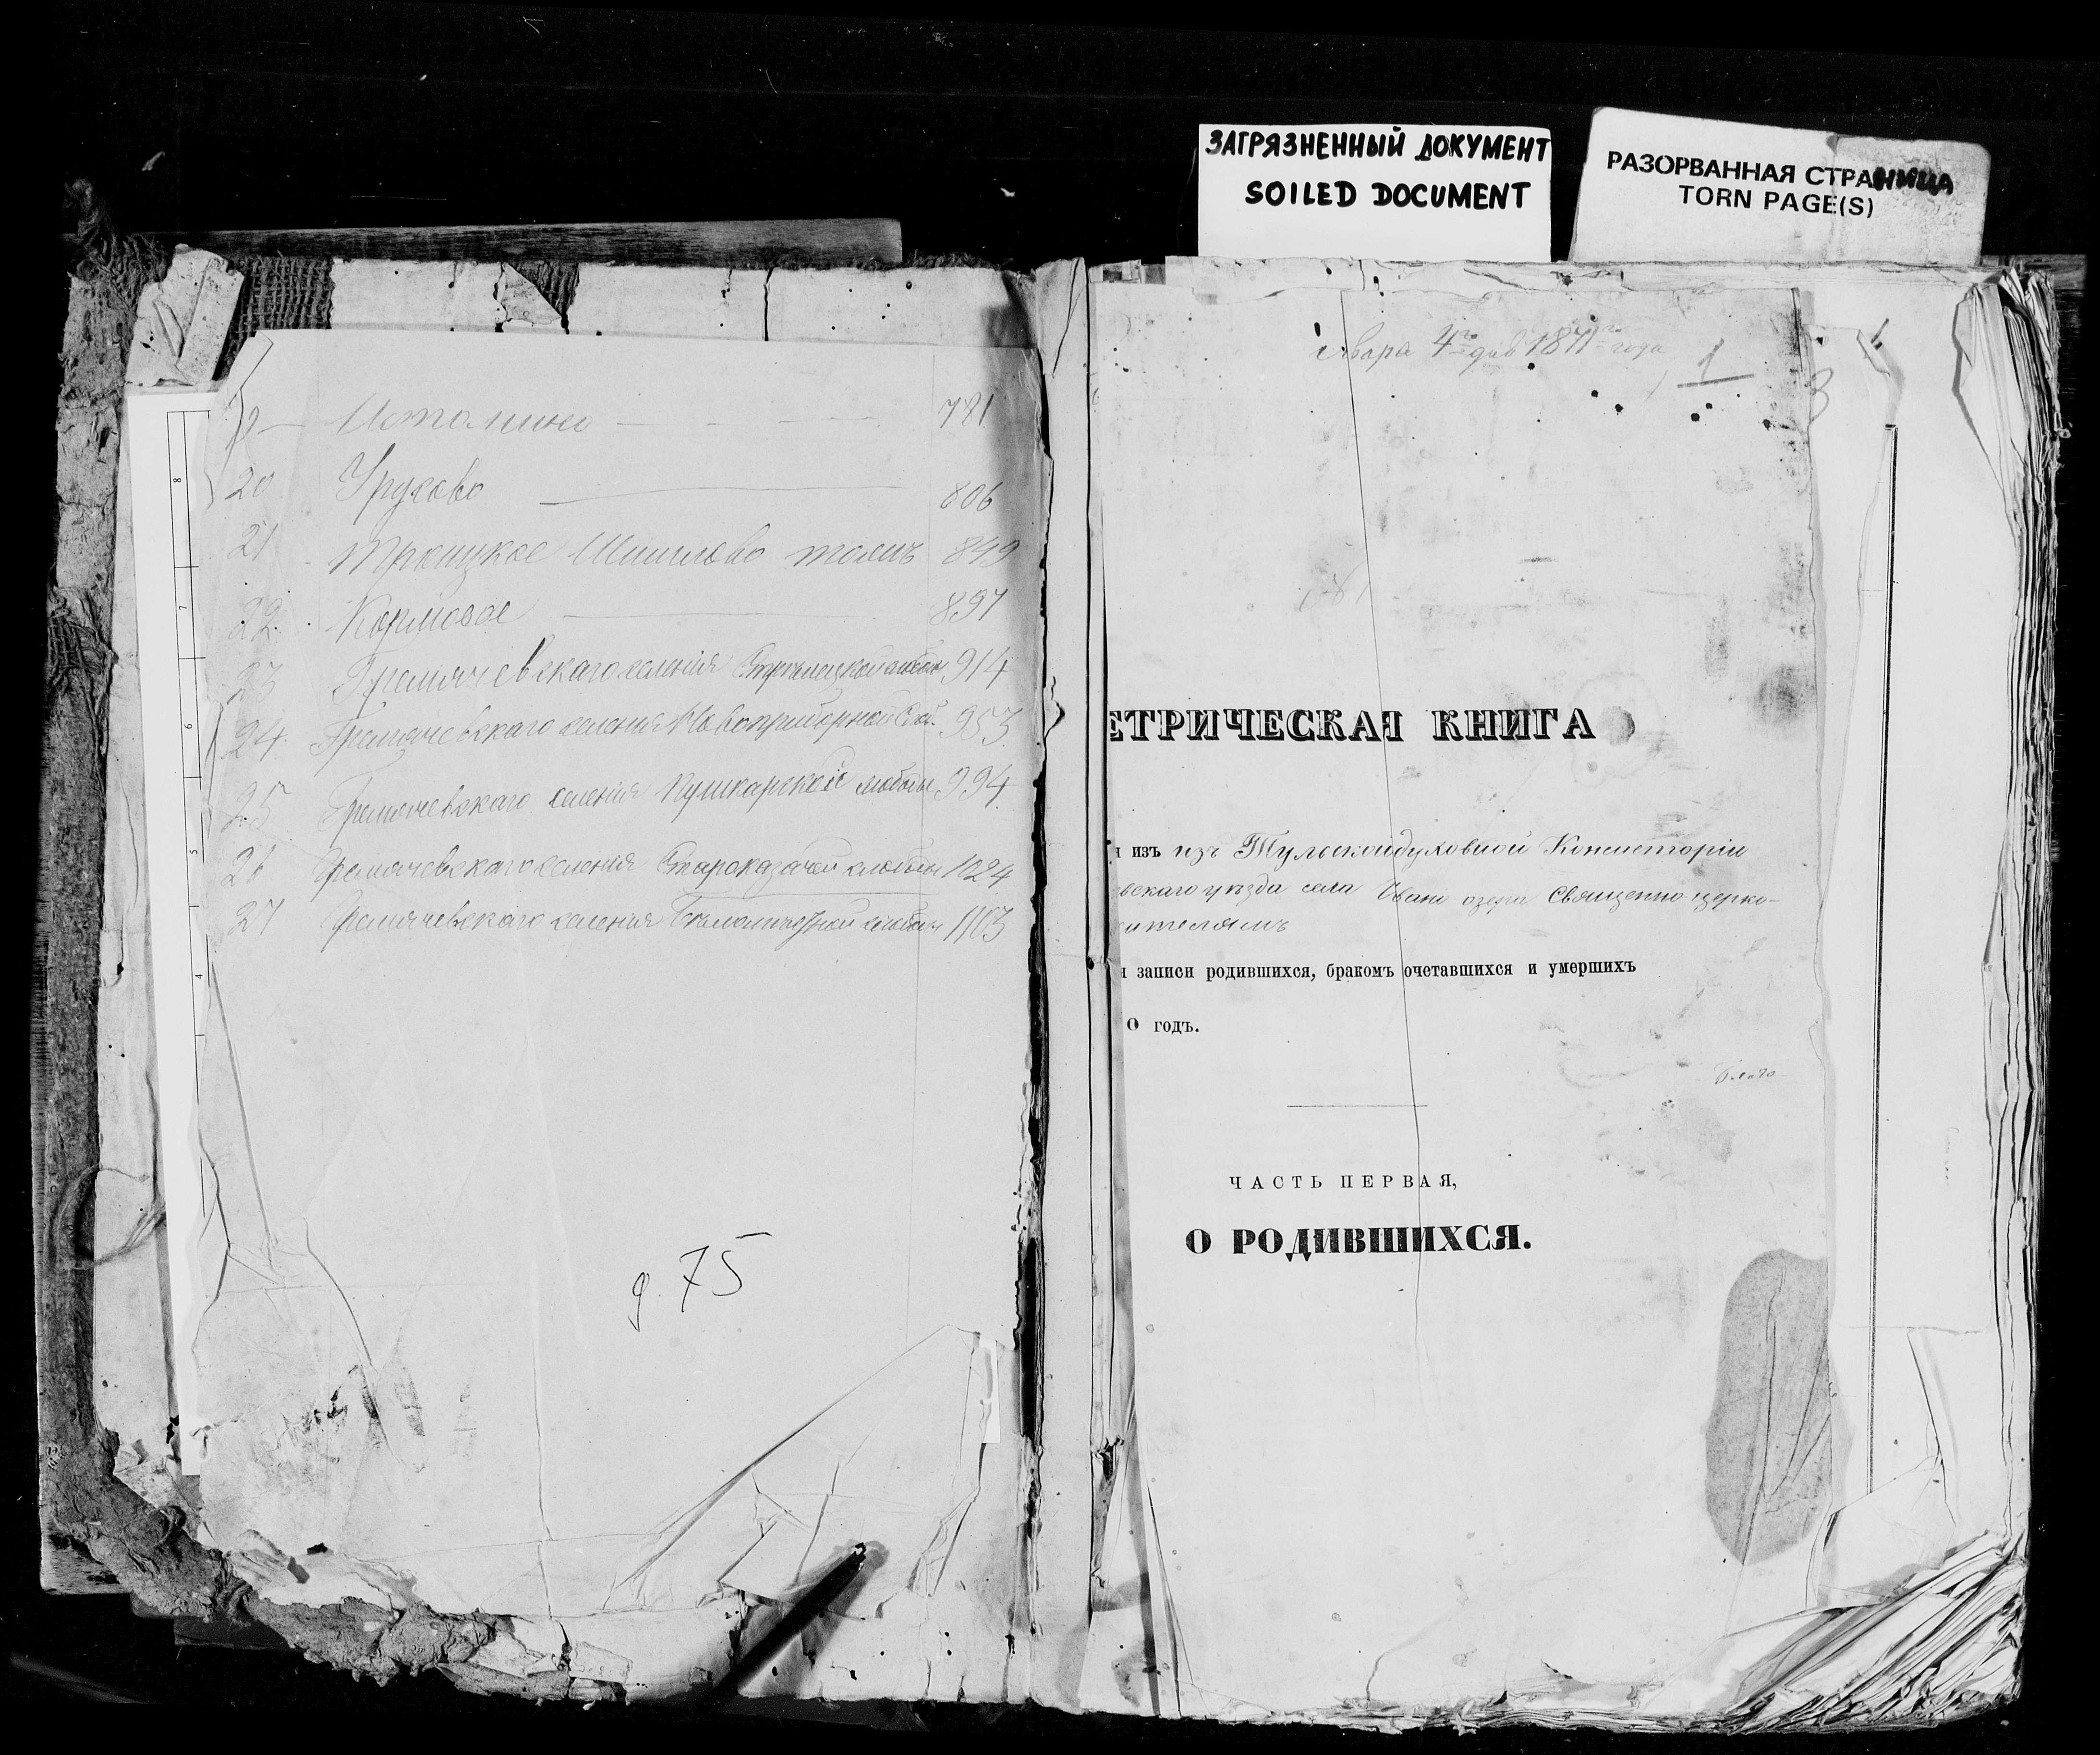 ЗАГРЯЗНЕННЫЙ ДОКУМЕНТ
SOILED DOCUMENT
РАЗОРВАННАЯ СТРАНИЦА
TORN PAGE(S)
Истомино 781
20 Урусово 806
21 Троицкое Шишлово тожъ 849
22 Кормовое 897
23 Гремячевскаго селенія Стрѣлецкой слободы 914
24. Гремячевскаго селенія Новоприборной Слоб. 953
25 Гремячевскаго селенія Пушкарской слободы 994
26 Гремячевскаго селенія Староказачей слободы 1024
27 Гремячевскаго селенія слободы 1103
д. 75
4го дня 1871го года
1
3
ЕТРИЧЕСКАЯ КНИГА
изъ изъ Тульской духовной Консисторіи
вскаго уѣзда села Ивань озера Священно-церко-
ителямъ
записи родившихся, бракомъ очетавшихся и умершихъ
0 годъ.
ЧАСТЬ ПЕРВАЯ,
О РОДИВШИХСЯ.
8
7
6
5
4